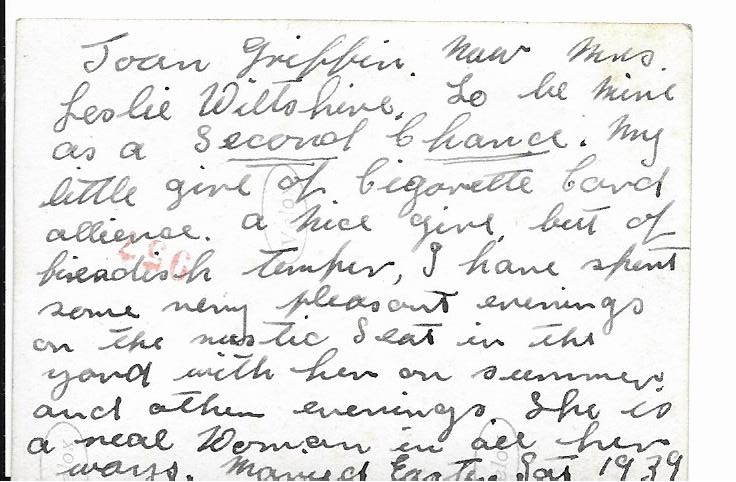 Joan Griffin. Now Mrs.
Leslie Wiltshire. To be mine
as a Second Chance. My
little girl of Cigarette Card
allience. A nice girl, but of
temper, I have spent
some very pleasant evenings
on the rustic Seat in the
yard with her on summer
and other evenings. She is
a real Woman in all her
ways. Married Easter Sat 1939
Velox
Velox
Velox